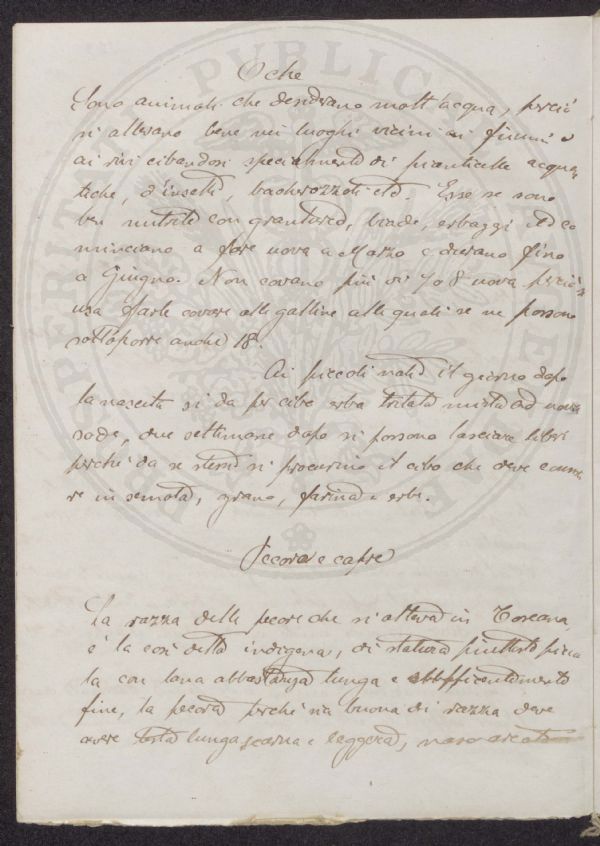 Oche
Sono animali che desiderano molt'acqua, perciò
si allevano bene nei luoghi vicini ai fiumi o
ai rivi cibandosi specialmente di pianticelle acqua-
tiche, d'insetti, bacherozzoli etc. Esse se sono
ben nutrite con granturco, biade, erbaggi etc co
minciano a fare uova a Marzo e durano fino
a Giugno. Non covano più di 7 o 8 uova perciò si
usa farle covare alle galline alle quali se ne possono
sottoporre anche 18.
Ai piccoli nati il giorno dopo
la nascita si da per cibo erba tritata mista ad uova
sode, due settimane dopo si possono lasciare liberi
perchè da se stessi si procurino il cibo che deve consiste
re in semola, grano, farina e erbe.
Pecore e capre
La razza delle pecore che si alleva in Toscana
è la così detta indigena, di statura piuttosto picco
la con lana abbastanza lunga e sufficentemente
fine, la pecora perchè sia buona di razza deve
avere testa lunga scarna e leggera, naso arcato
PROSPERITATI PUBLICAE